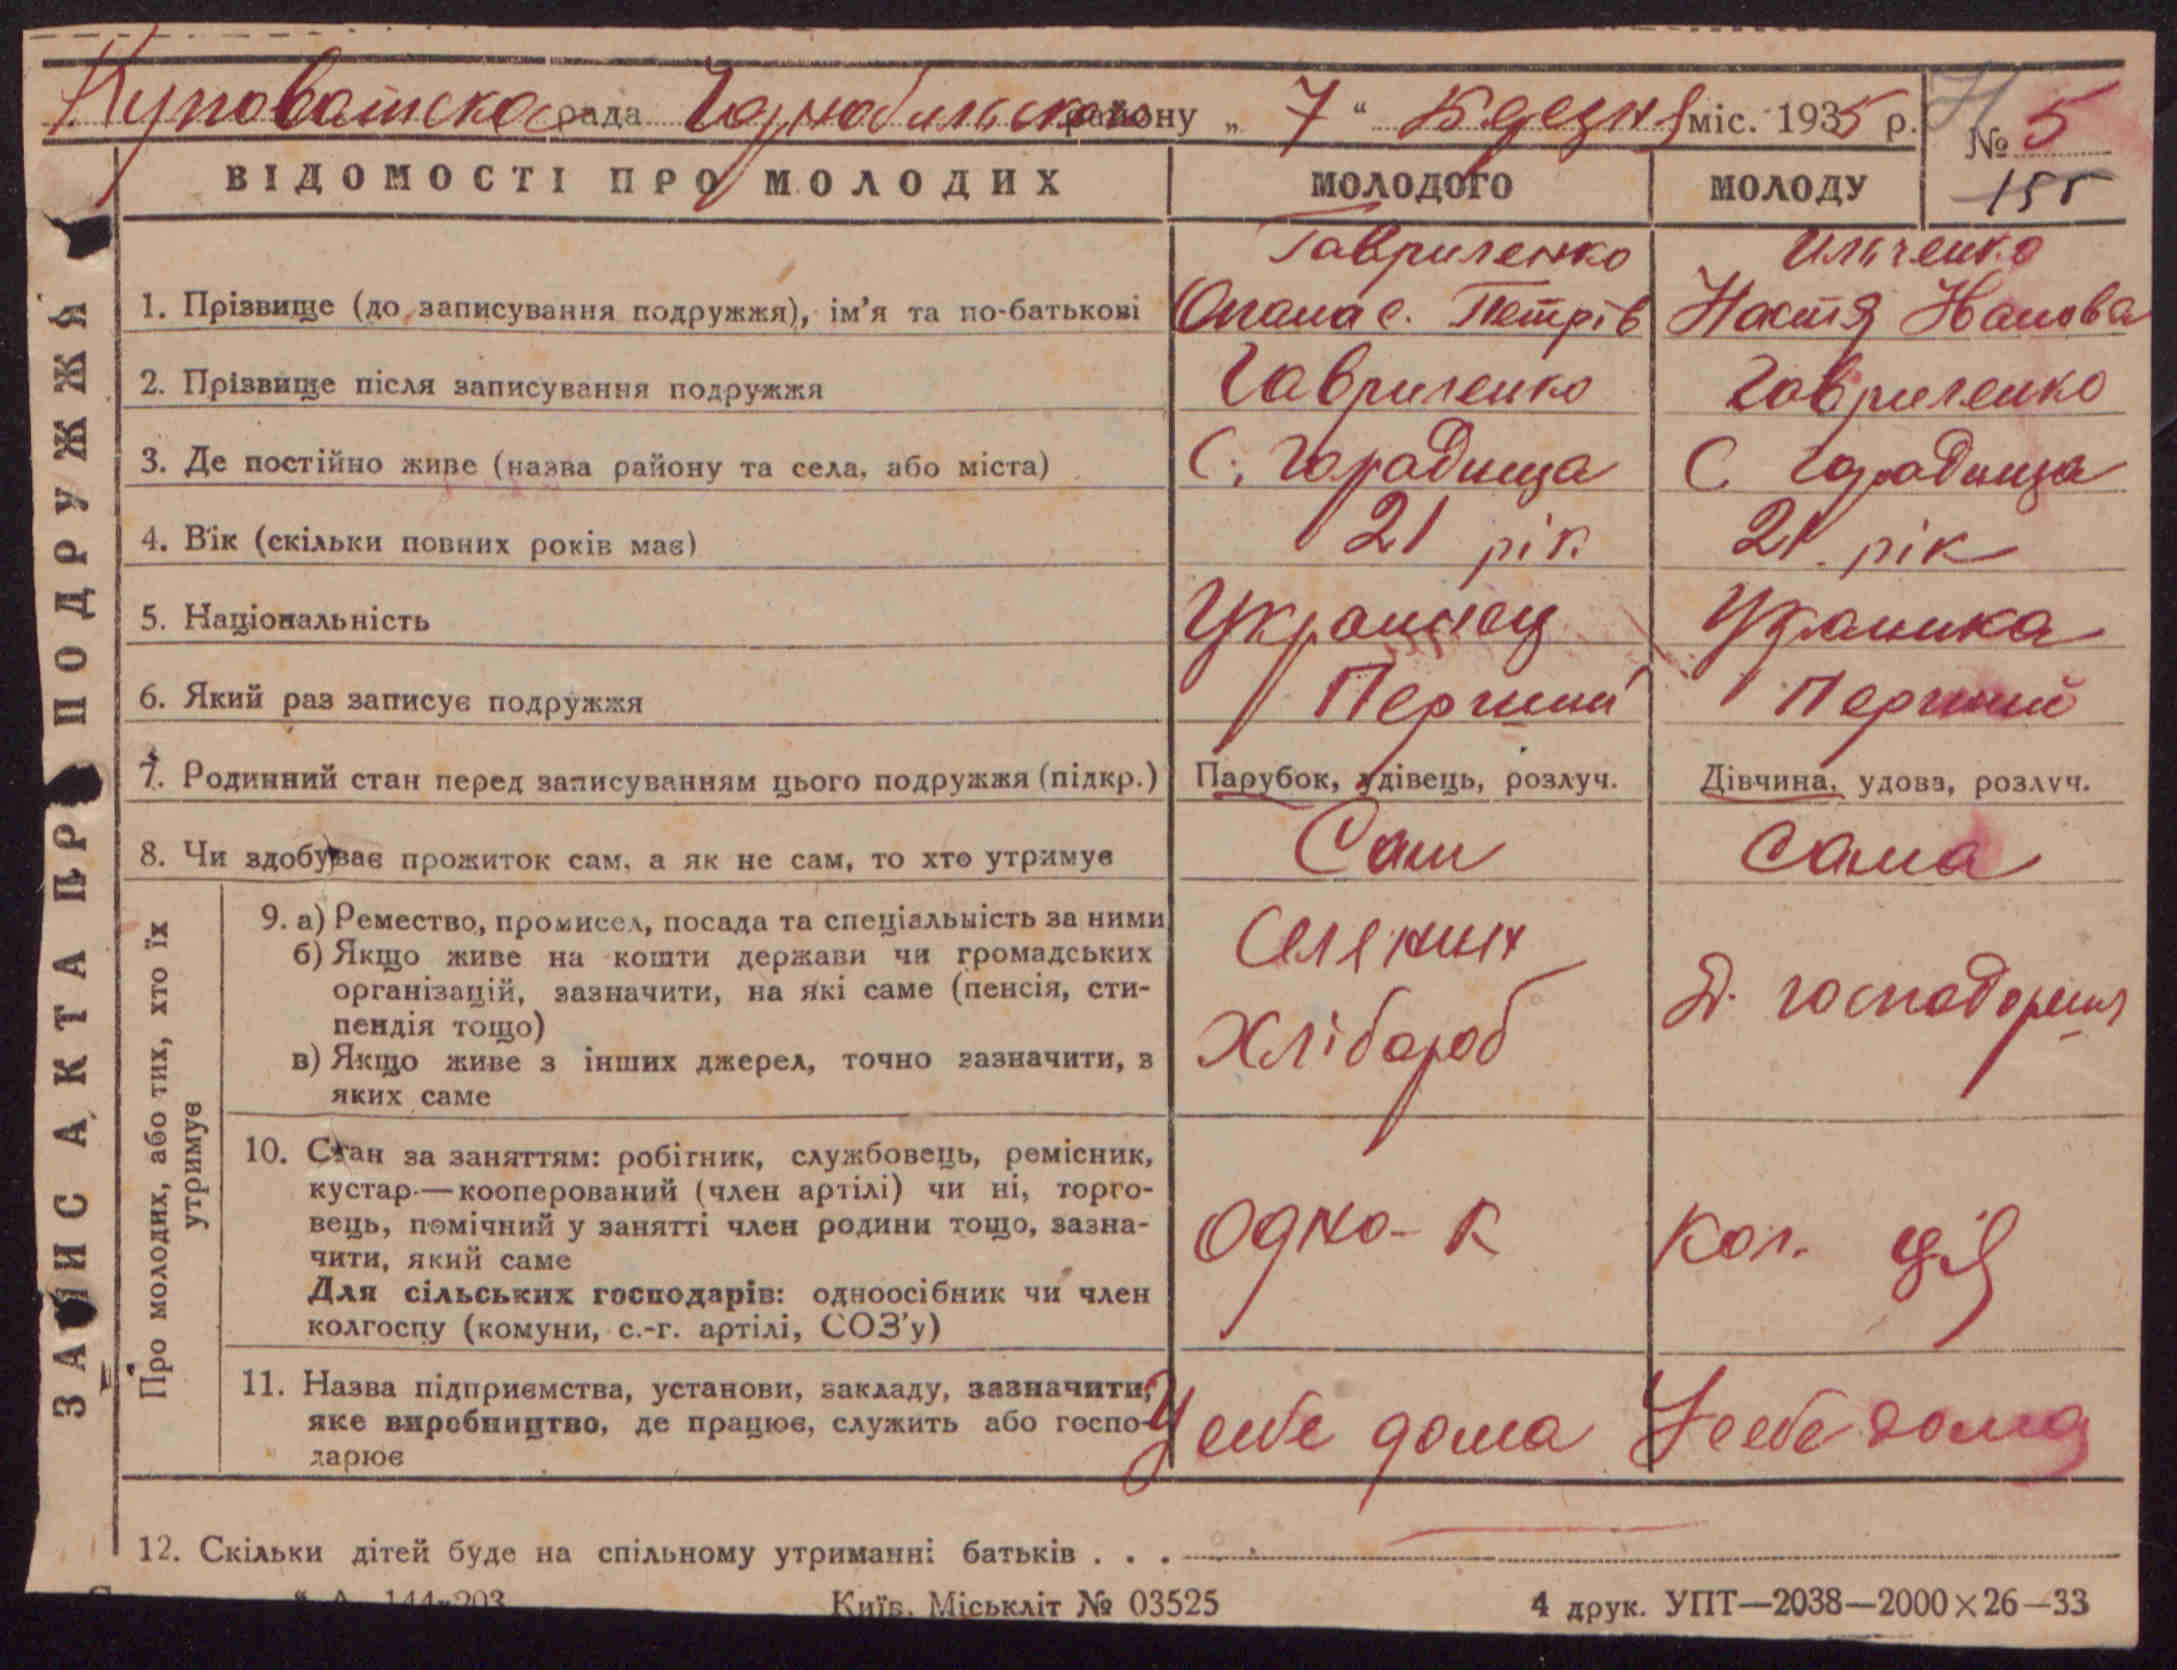 Куповатска рада Чорнобильского району „ 7 “ Березня міс. 1935 р. № 5
155
ВІДОМОСТІ ПРО МОЛОДИХ МОЛОДОГО МОЛОДУ
ЗАПИС АКТА ПРО ПОДРУЖЖЯ
Гавриленко Ильченко
1. Прізвище (до записування подружжя), ім’я та по-батькові Опанас. Петрів Настя Іванова
2. Прізвище після записування подружжя Гавриленко Гавриленко
3. Де постійно живе (назва району та села, або міста) С. Городища С. Городища
4. Вік (скільки повних років має) 21 рік 21 рік
5. Національність Украинец Украинка
6. Який раз записує подружжя Перший Перший
7. Родинний стан перед записуванням цього подружжя (підкр.) Парубок, удівець, розлуч. Дівчина, удова, розлуч.
8. Чи здобуває прожиток сам, а як не сам, то хто утримує Сам Сама
Про молодих, або тих, хто їх утримує
9. а) Ремество, промисел, посада та спеціальність за ними
б) Якщо живе на кошти держави чи громадських
організацій, зазначити, на які саме (пенсія, сти-
пендія тощо)
в) Якщо живе з інших джерел, точно зазначити, з
яких саме
Селянин
Хлібороб
Д. господорка
10. Стан за заняттям: робітник, службовець, ремісник,
кустар—кооперований (член артілі) чи ні, торго-
вець, помічний у занятті член родини тощо, зазна-
чити, який саме
Для сільських господарів: одноосібник чи член
колгоспу (комуни, с.-г. артілі, СОЗ’у)
Одно-к Кол.
11. Назва підприємства, установи, закладу, зазначити,
яке виробництво, де працює, служить або госпо-
дарює
У себе дома У себе дома
12. Скільки дітей буде на спільному утриманні батьків . . .
144-203 Київ. Міськліт № 03525 4 друк. УПТ—2038—2000×26—33